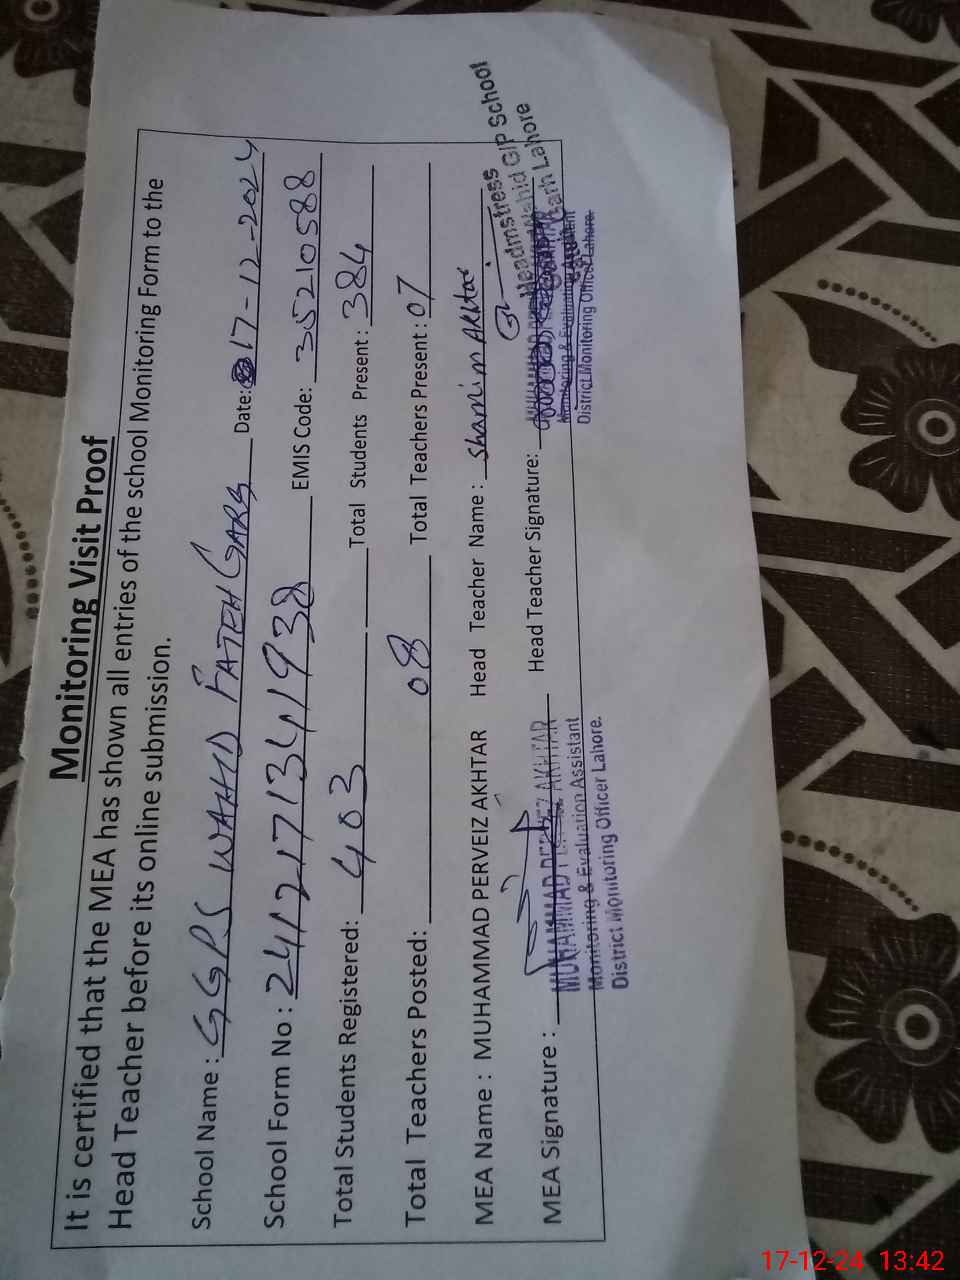 Monitoring Visit Proof
It is certified that the MEA has shown all entries of the school Monitoring Form to the
Head Teacher before its online submission.
School Name : GGPS WAHID FATEH GARH Date: 17-12-2024
School Form No : 2412171341938 EMIS Code: 35210588
Total Students Registered: 403 Total Students Present: 384
Total Teachers Posted: 08 Total Teachers Present: 07
MEA Name : MUHAMMAD PERVEIZ AKHTAR Head Teacher Name : Shamim Akhtar
MEA Signature : Head Teacher Signature:
MUHAMMAD PERVEIZ AKHTAR
Monitoring & Evaluation Assistant
District Monitoring Officer Lahore.
Headmistress
Wahid G/P School
Garh Lahore
Monitoring & Evaluation Assistant
District Monitoring Officer Lahore.
17-12-24 13:42